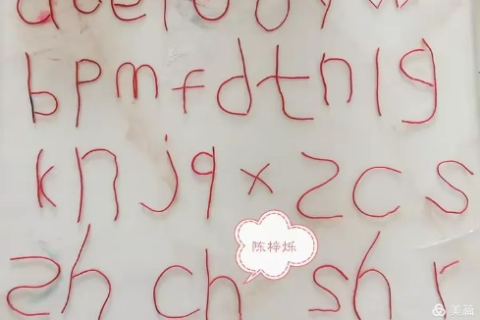 b p m f d t n l g
k n j q x z c s
陈梓烁
zh ch sh r
美篇